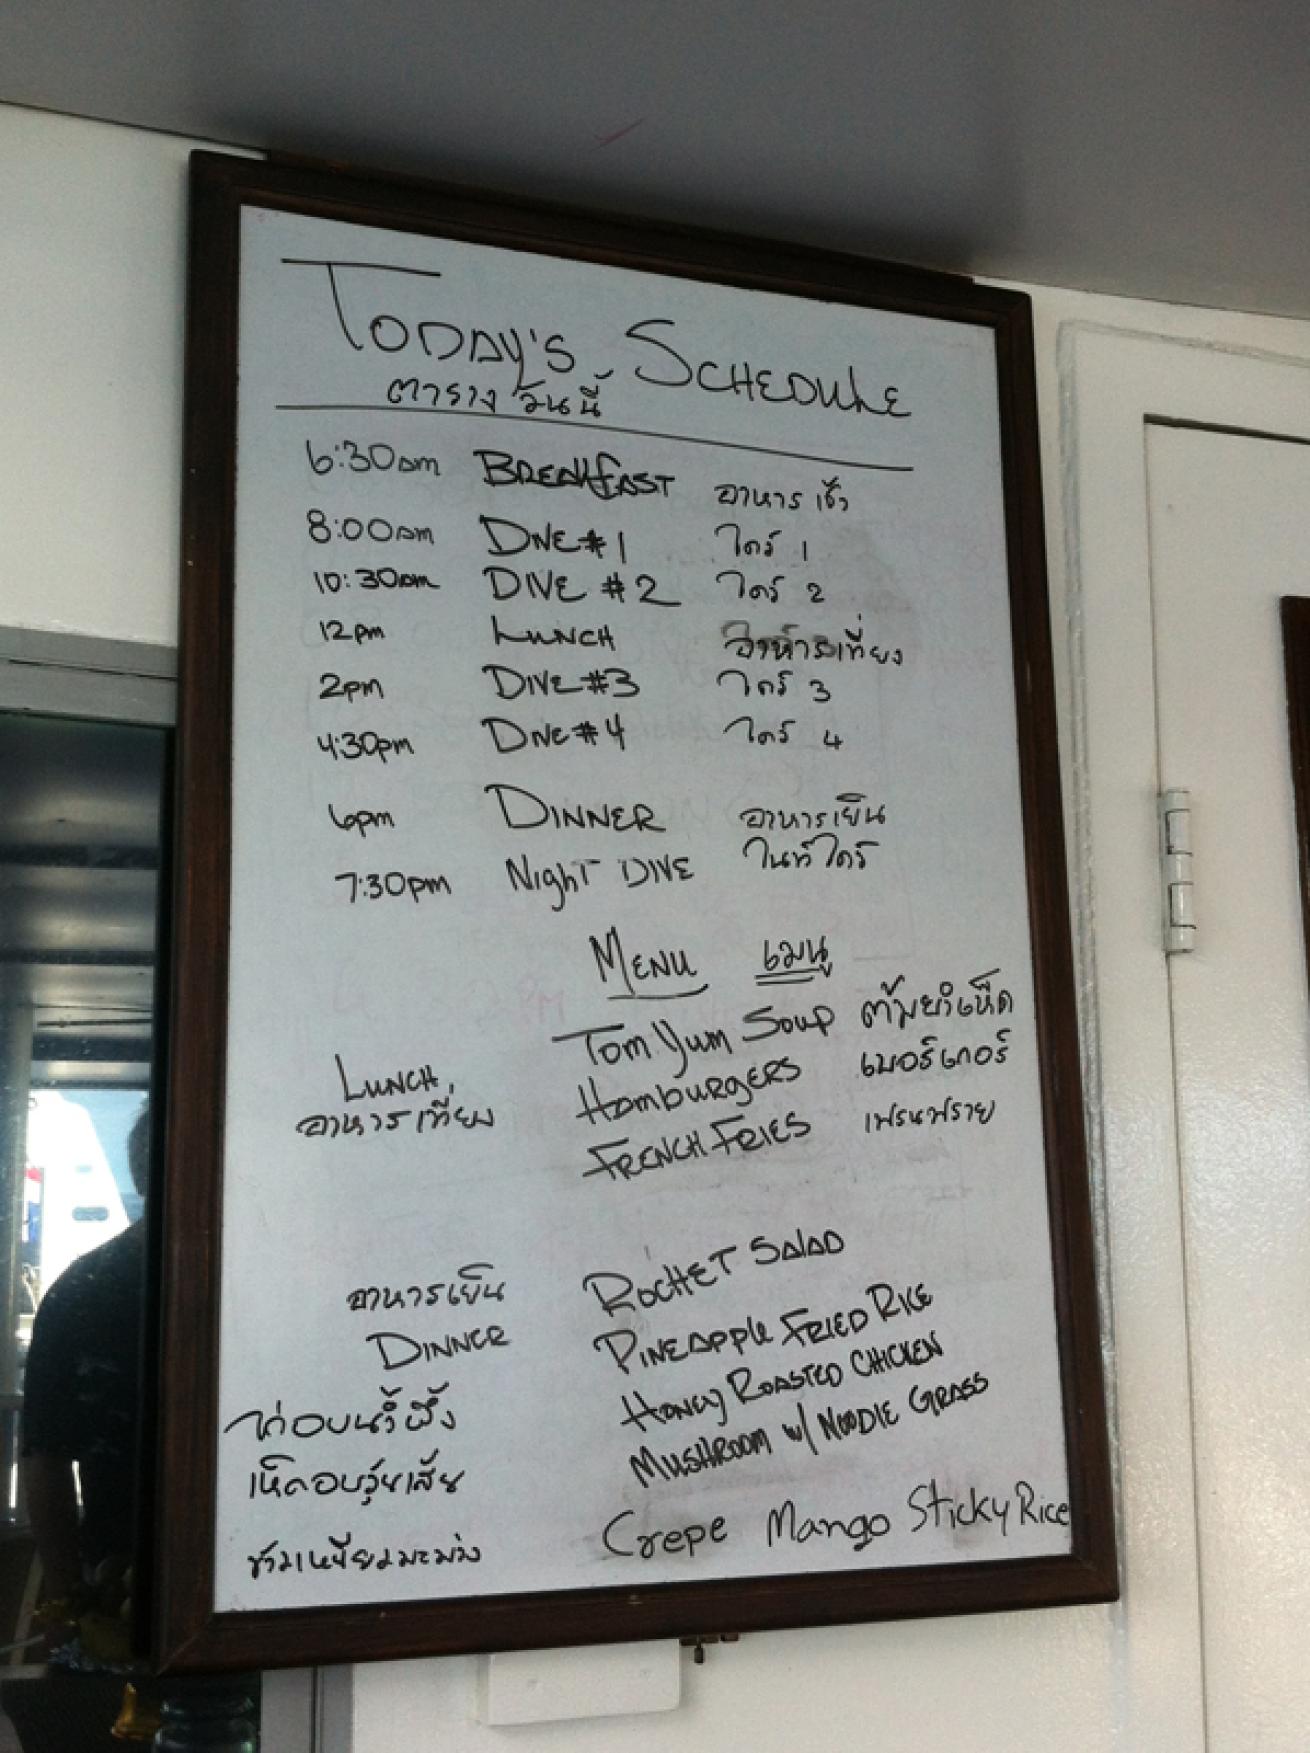 TODAY'S SCHEDULE
ตาราง วันนี้
6:30am BREAKFAST อาหาร เช้า
8:00am DIVE #1 ไดร์ 1
10:30am DIVE #2 ไดร์ 2
12pm LUNCH อาหารเที่ยง
2pm DIVE #3 ไดร์ 3
4:30pm DIVE #4 ไดร์ 4
6pm DINNER อาหารเย็น
7:30pm Night DIVE ไนท์ ไดร์
MENU เมนู
Tom Yum Soup ต้มยำเห็ด
LUNCH, Hamburgers เบอร์เกอร์
อาหารเที่ยง FRENCH FRIES เฟรนฟราย
อาหารเย็น ROCKET SALAD
DINNER PINEAPPLE FRIED RICE
ไก่อบน้ำผึ้ง HONEY ROASTED CHICKEN
เห็ดอบวุ้นเส้น MUSHROOM W/ NOODLE GRASS
ข้าวเหนียวมะม่วง Crepe Mango Sticky Rice